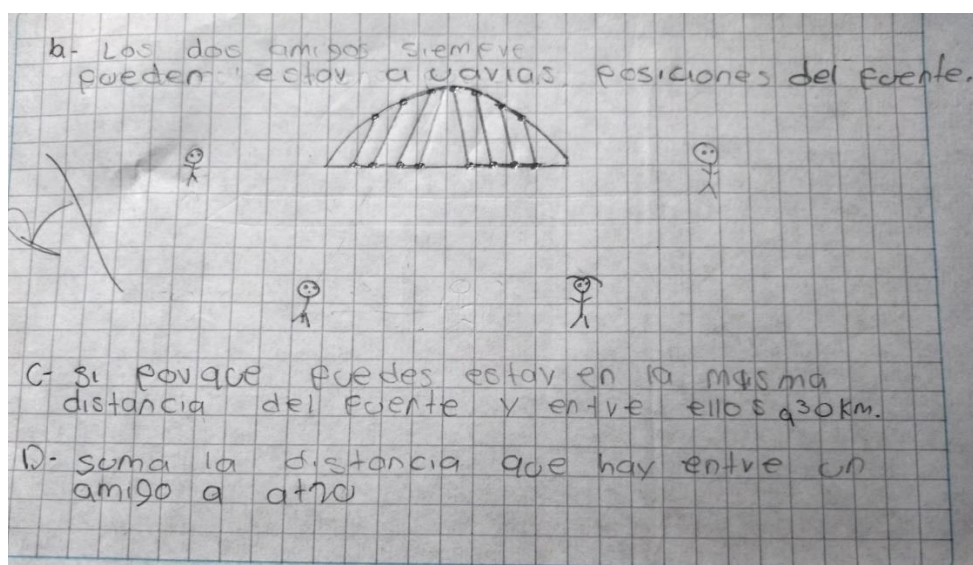 b- Los dos amigos siempre
pueden estar a varias posiciones del puente.
C- si porque puedes estar en la misma
distancia del puente y entre ellos a 30 km.
D- suma la distancia que hay entre un
amigo a atro